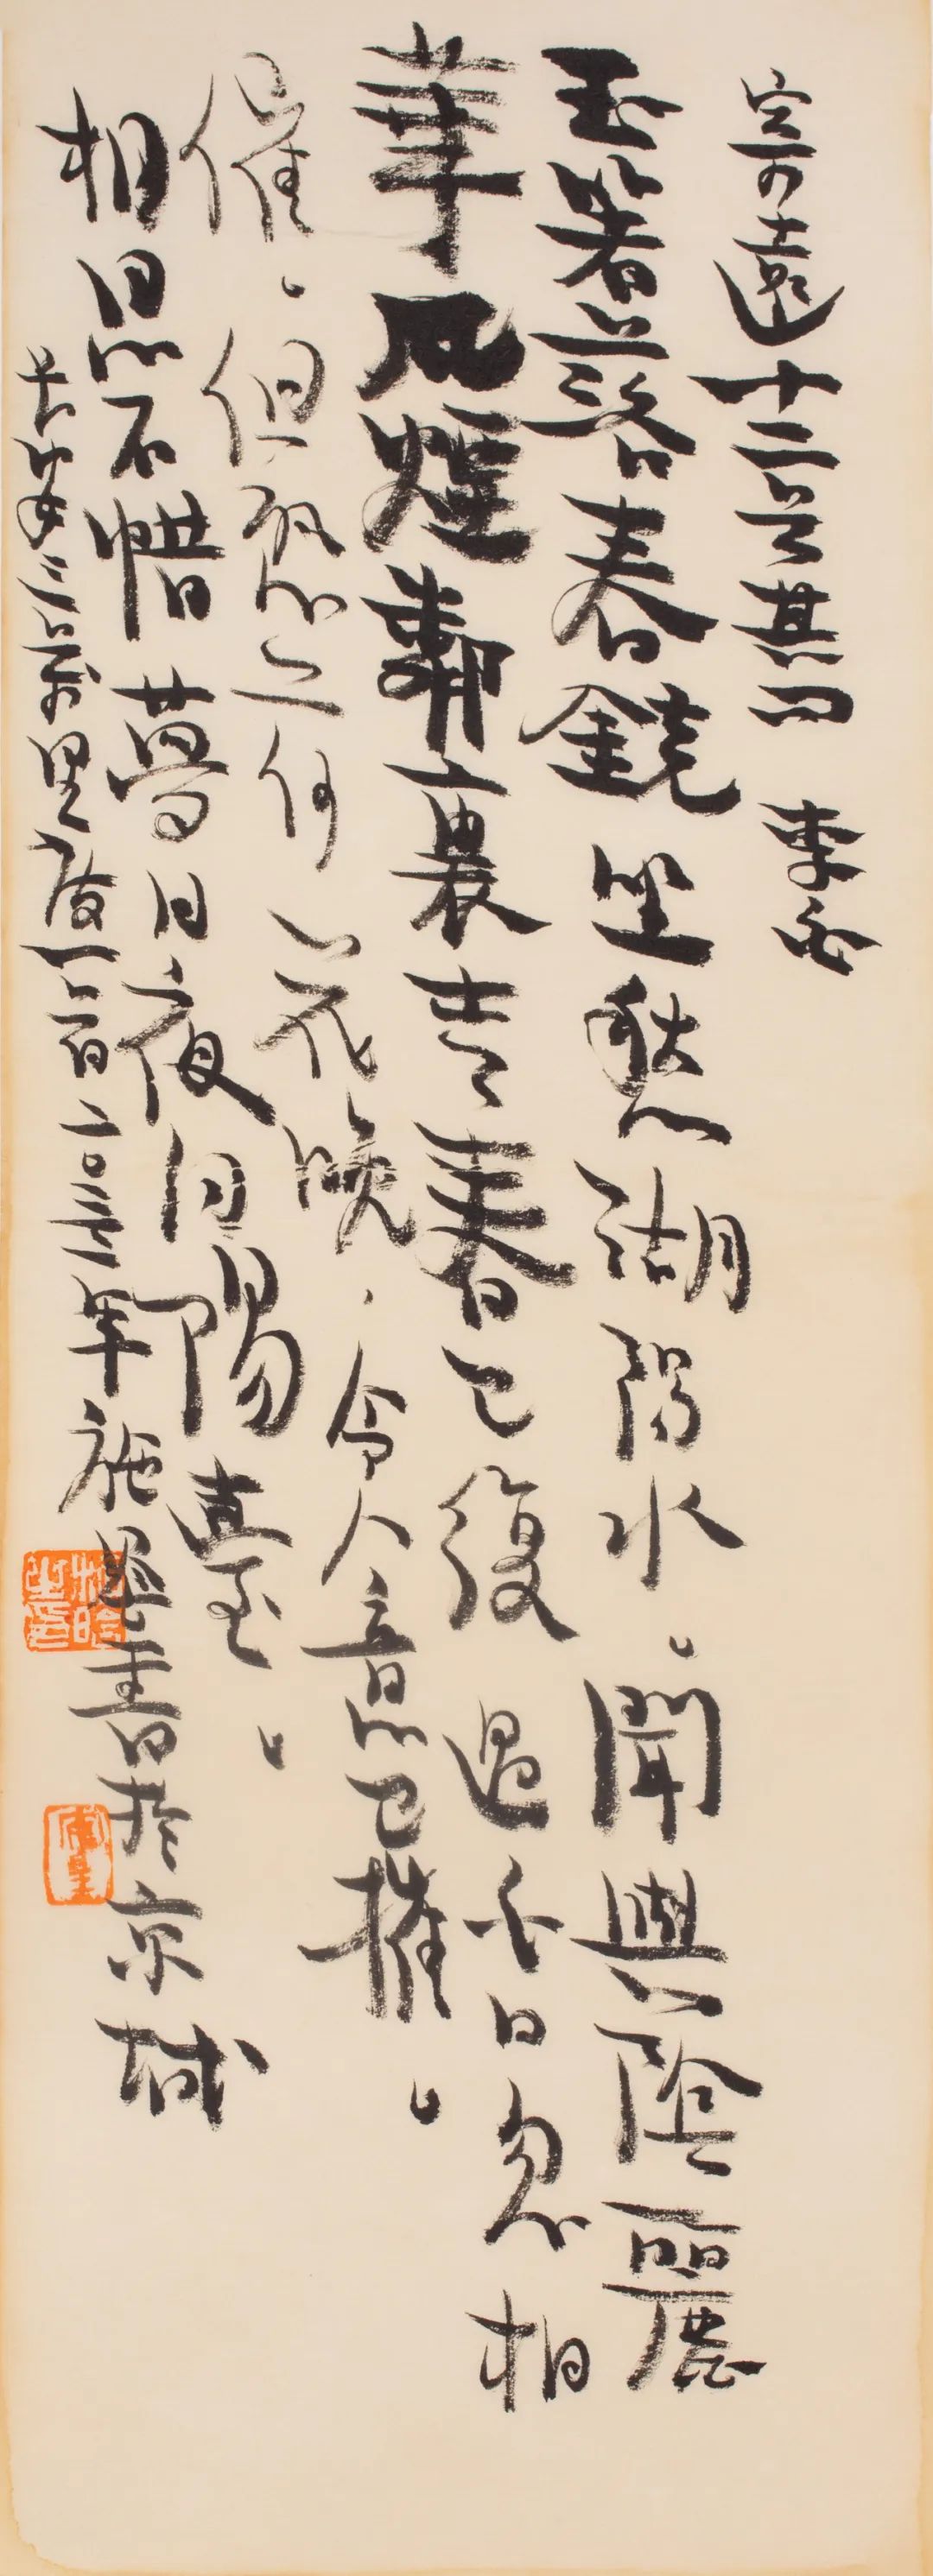 寄遠十二首其四 李白
玉箸落春鏡坐愁湖陽水、聞與陰麗
華風煙鄰裏青春已復過白日忽相
催、但恐荷花晚、令人意已摧、
相思不惜夢日夜向陽臺、
長安三萬里 一百二〇二三年施晗書於京城